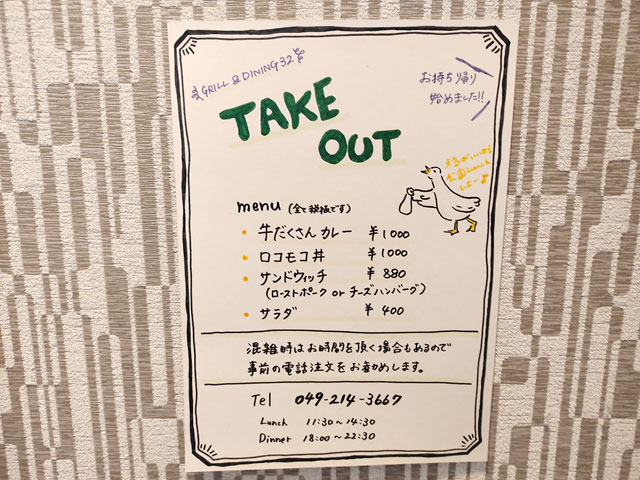 GRILL & DINING 32
お持ち帰り
始めました!!
TAKE
OUT
天気がいいから
公園lunch
しよー♪
menu (全て税抜です)
・牛だくさんカレー ¥1000
・ロコモコ丼 ¥1000
・サンドウィッチ ¥880
(ローストポーク or チーズハンバーグ)
・サラダ ¥400
混雑時はお時間を頂く場合もあるので
事前の電話注文をお勧めします。
Tel 049-214-3667
Lunch 11:30~14:30
Dinner 18:00~22:30